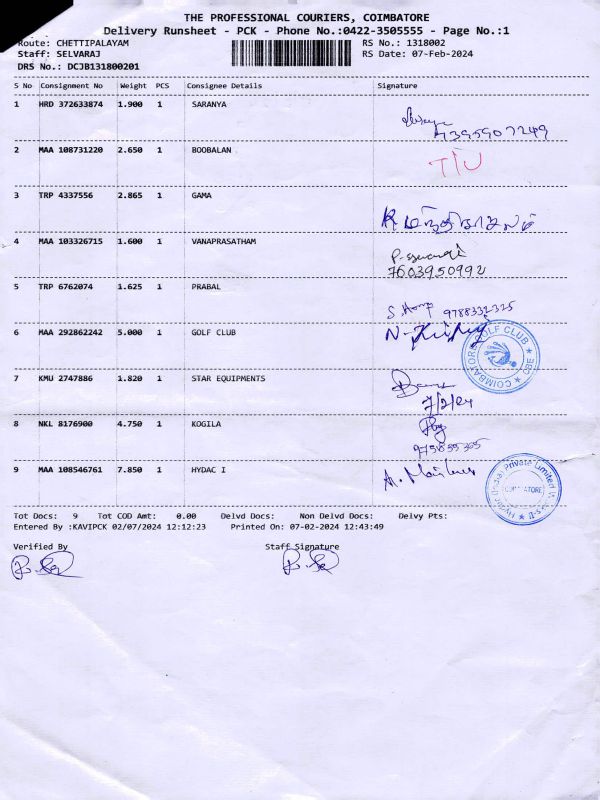 THE PROFESSIONAL COURIERS, COIMBATORE
Delivery Runsheet - PCK - Phone No.:0422-3505555 - Page No.:1
Route: CHETTIPALAYAM RS No.: 1318002
Staff: SELVARAJ RS Date: 07-Feb-2024
DRS No.: DCJB131800201
S No Consignment No Weight PCS Consignee Details Signature
1 HRD 372633874 1.900 1 SARANYA
7395907249
2 MAA 108731220 2.650 1 BOOBALAN
3 TRP 4337556 2.865 1 GAMA
4 MAA 103326715 1.600 1 VANAPRASATHAM
7603950992
5 TRP 6762074 1.625 1 PRABAL
9788332325
6 MAA 292862242 5.000 1 GOLF CLUB
COIMBATORE GOLF CLUB CBE
7 KMU 2747886 1.820 1 STAR EQUIPMENTS
7/2/24
8 NKL 8176900 4.750 1 KOGILA
9 MAA 108546761 7.850 1 HYDAC I
Hydac (India) Private Limited
COIMBATORE
Tot Docs: 9 Tot COD Amt: 0.00 Delvd Docs: Non Delvd Docs: Delvy Pts:
Entered By :KAVIPCK 02/07/2024 12:12:23 Printed On: 07-02-2024 12:43:49
Verified By Staff Signature